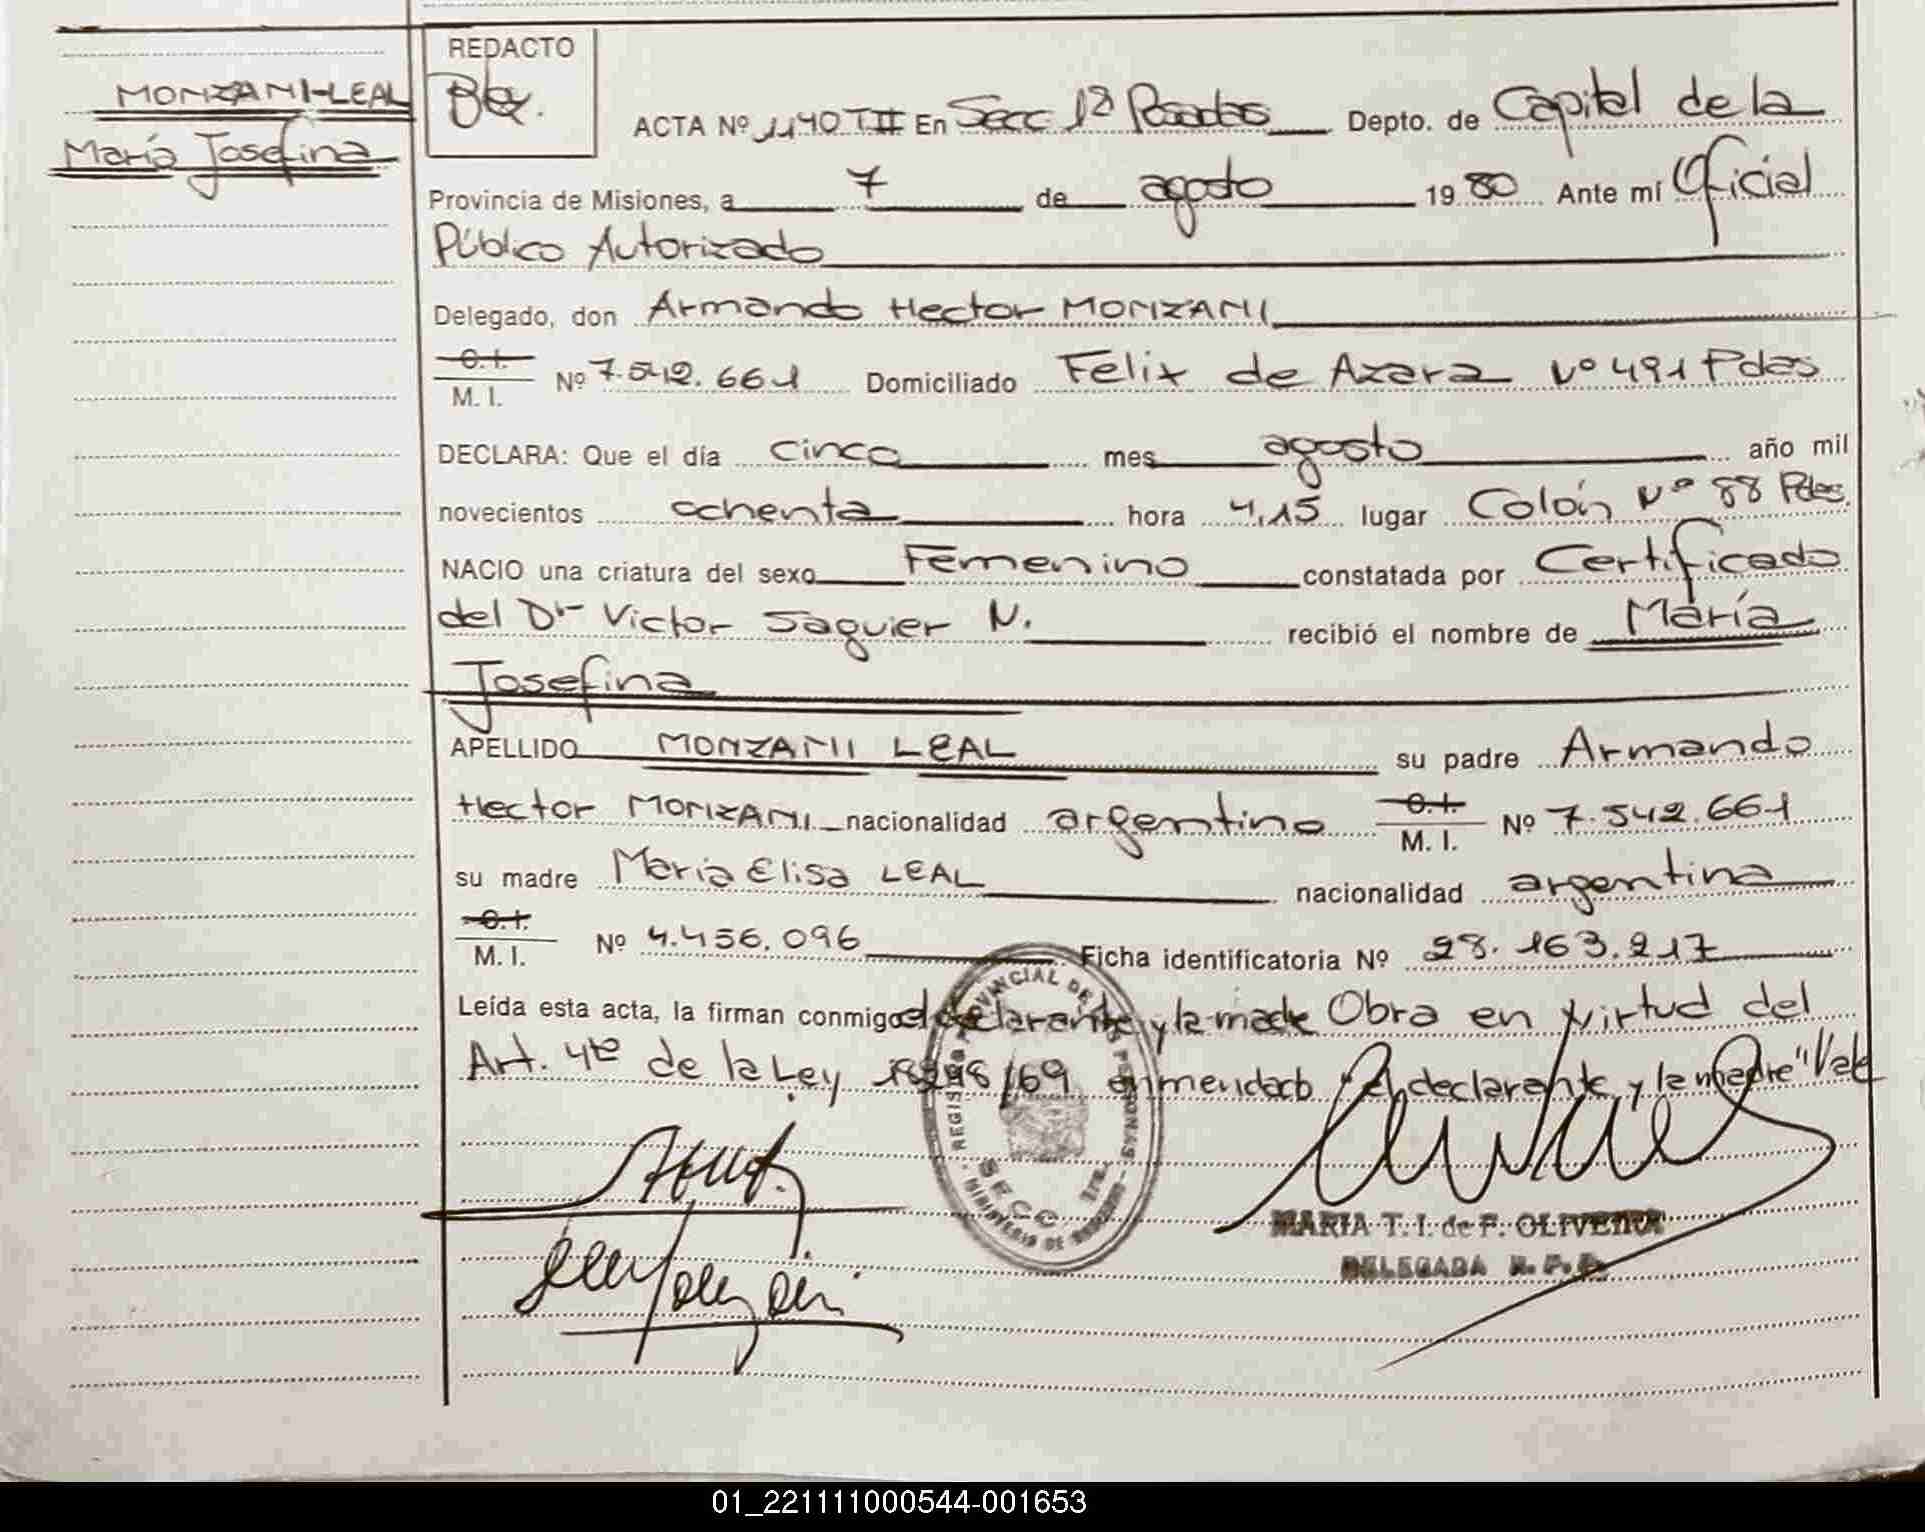 MONZANI-LEAL
María Josefina
REDACTO
ACTA Nº 1140 TII En Secc 1ª Posadas Depto. de Capital de la
Provincia de Misiones, a 7 de agosto 1980 Ante mí Oficial
Público Autorizado
Delegado, don Armando Hector MONZANI
C.I. M.I. Nº 7.542.661 Domiciliado Felix de Azara Nº 491 Pdas
DECLARA: Que el día cinco mes agosto año mil
novecientos ochenta hora 4,15 lugar Colón Nº 88 Pdas.
NACIO una criatura del sexo Femenino constatada por Certificado
del Dr Victor Saguier N. recibió el nombre de María
Josefina
APELLIDO MONZANI LEAL su padre Armando
Hector MONZANI nacionalidad argentino C.I. M.I. Nº 7.542.661
su madre María Elisa LEAL nacionalidad argentina
C.I. M.I. Nº 4.456.096 Ficha identificatoria Nº 28.163.217
Leída esta acta, la firman conmigo el declarante y la madre Obra en virtud del
Art. 4to de la Ley 18248/69 enmendado "el declarante y la madre" Vale
REGISTRO PROVINCIAL DE LAS PERSONAS
SECC 1ra.
MINISTERIO DE GOBIERNO
MARIA T. I. de F. OLIVEIRA
DELEGADA R. P. P.
01_221111000544-001653